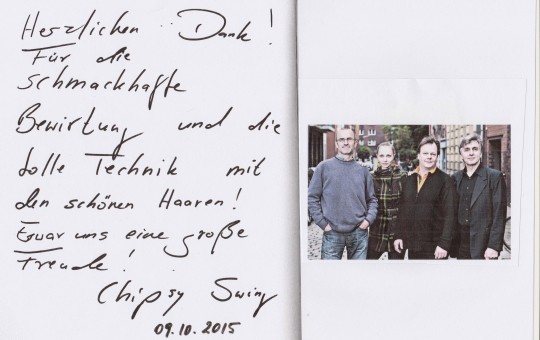 Herzlichen Dank!
Für die
schmackhafte
Bewirtung und die
tolle Technik mit
den schönen Haaren!
Es war uns eine große
Freude!
Chipsy Swing
09.10.2015